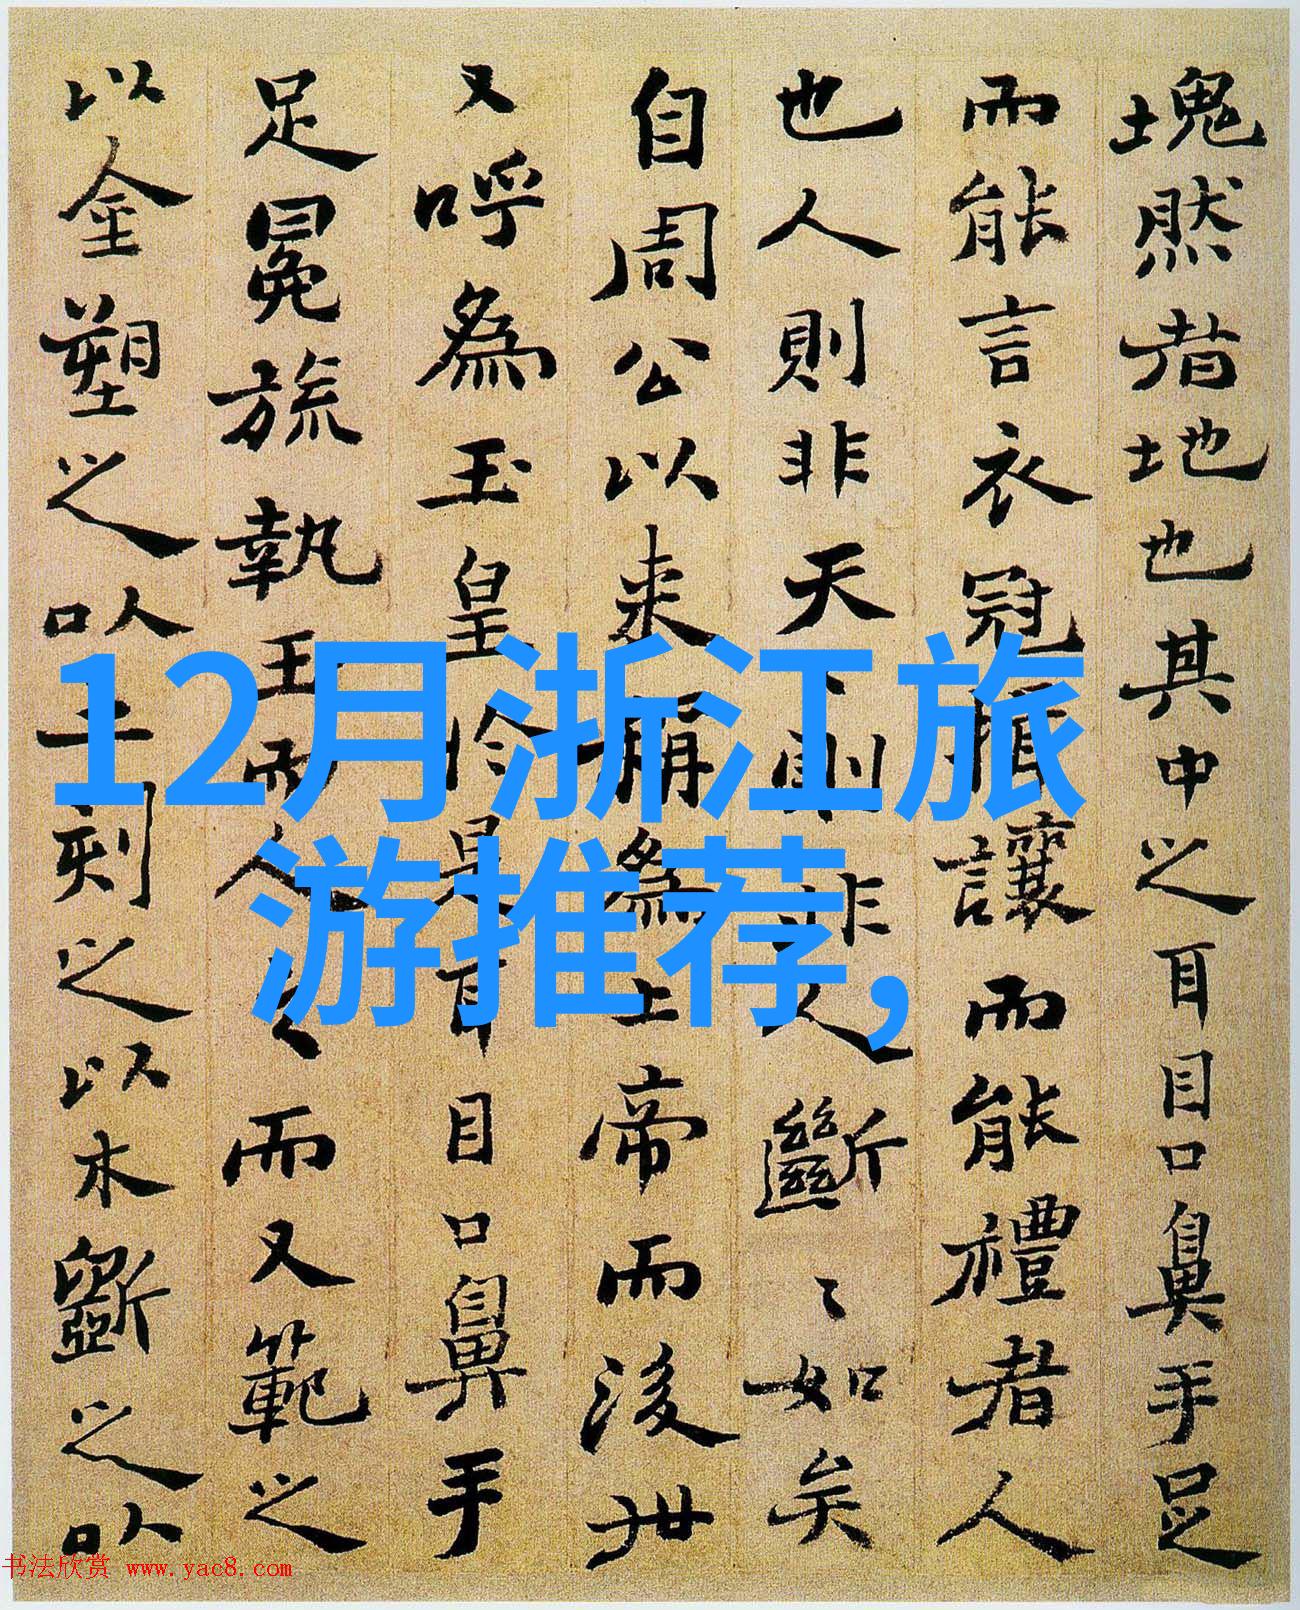 塊然者地也其中之耳目口鼻手足
而能言衣冠揖讓而能禮者人
也人則非天〻則非人斷〻如矣
自周公以来稱為上帝而後世
又呼為玉皇於是耳目口鼻手
足冕旒執玉而人之而又範之
以金塑之以土刻之以木斲之以
12月浙江旅
游推荐,
书法欣赏 www.yac8.com